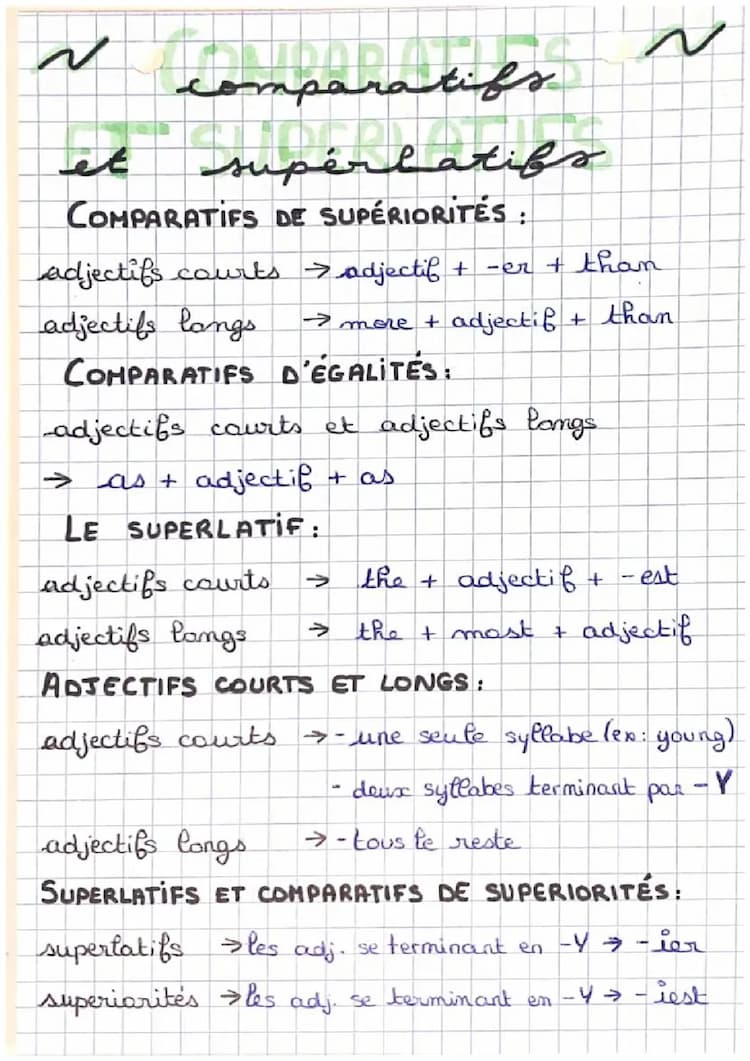 comparatifs
et supérlatifs
COMPARATIFS DE SUPÉRIORITÉS :
adjectifs courts → adjectif + -er + than
adjectifs longs → more + adjectif + than
COMPARATIFS D'ÉGALITÉS :
adjectifs courts et adjectifs longs
→ as + adjectif + as
LE SUPERLATIF :
adjectifs courts → the + adjectif + -est
adjectifs longs → the + most + adjectif
ADJECTIFS COURTS ET LONGS :
adjectifs courts → - une seule syllabe (ex: young)
- deux syllabes terminant par - Y
adjectifs longs → - tous le reste
SUPERLATIFS ET COMPARATIFS DE SUPERIORITÉS :
superlatifs → les adj. se terminant en -Y → -ier
superiorités → les adj. se terminant en -Y → -iest